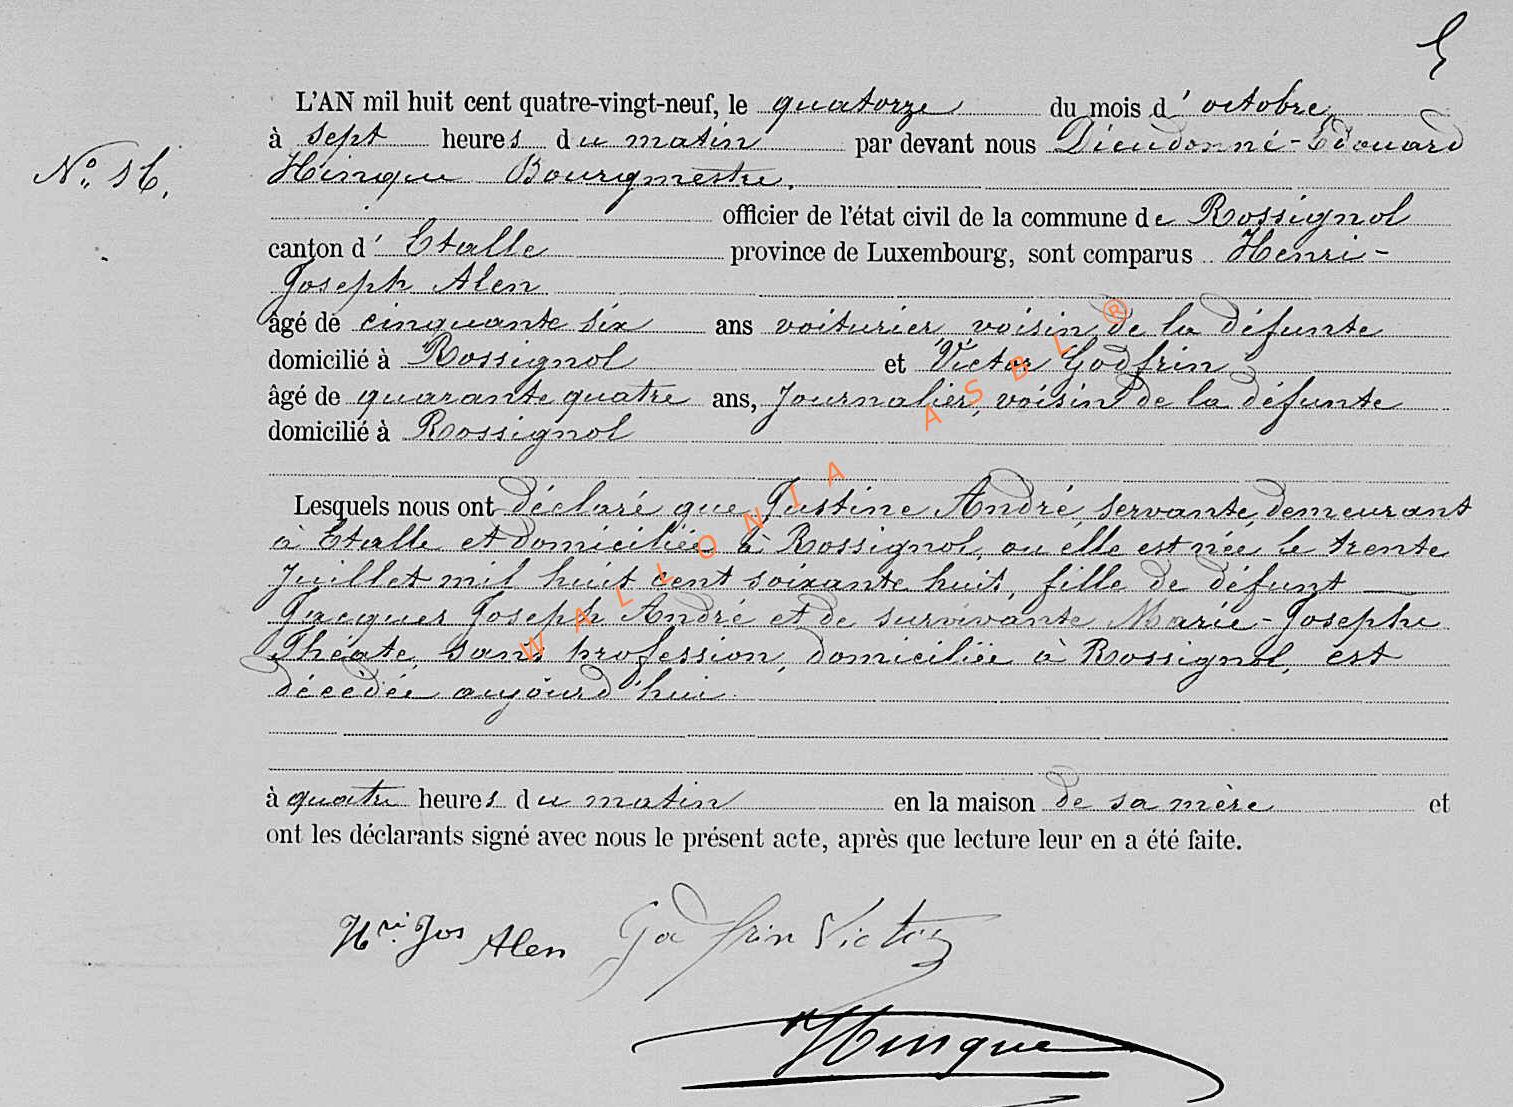 5
L'AN mil huit cent quatre-vingt-neuf, le quatorze du mois d'octobre
à sept heures du matin par devant nous Dieudonné-Edouard
N° 16.
Hinque Bourgmestre.
officier de l'état civil de la commune de Rossignol
canton d'Etalle province de Luxembourg, sont comparus Henri-
Joseph Alen
âgé de cinquante six ans voiturier, voisin de la défunte
domicilié à Rossignol et Victor Godfrin
âgé de quarante quatre ans, Journalier, voisin de la défunte
domicilié à Rossignol
Lesquels nous ont déclaré que Justine André, servante, demeurant
à Etalle et domiciliée à Rossignol, ou elle est née le trente
Juillet mil huit cent soixante huit, fille de défunt
Jacques Joseph André et de survivante Marie-Josephe
Théate, sans profession, domiciliée à Rossignol, est
décédée aujourd'hui
à quatre heures du matin en la maison de sa mère et
ont les déclarants signé avec nous le présent acte, après que lecture leur en a été faite.
Hri Jos Alen Godfrin Victor
Hinque
WALLONIA ASBL ®